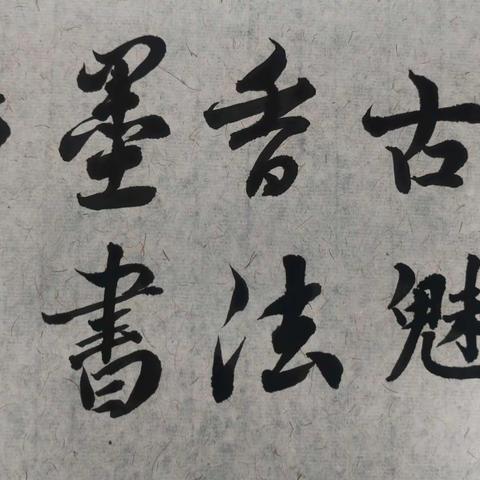 墨香古
書法魅